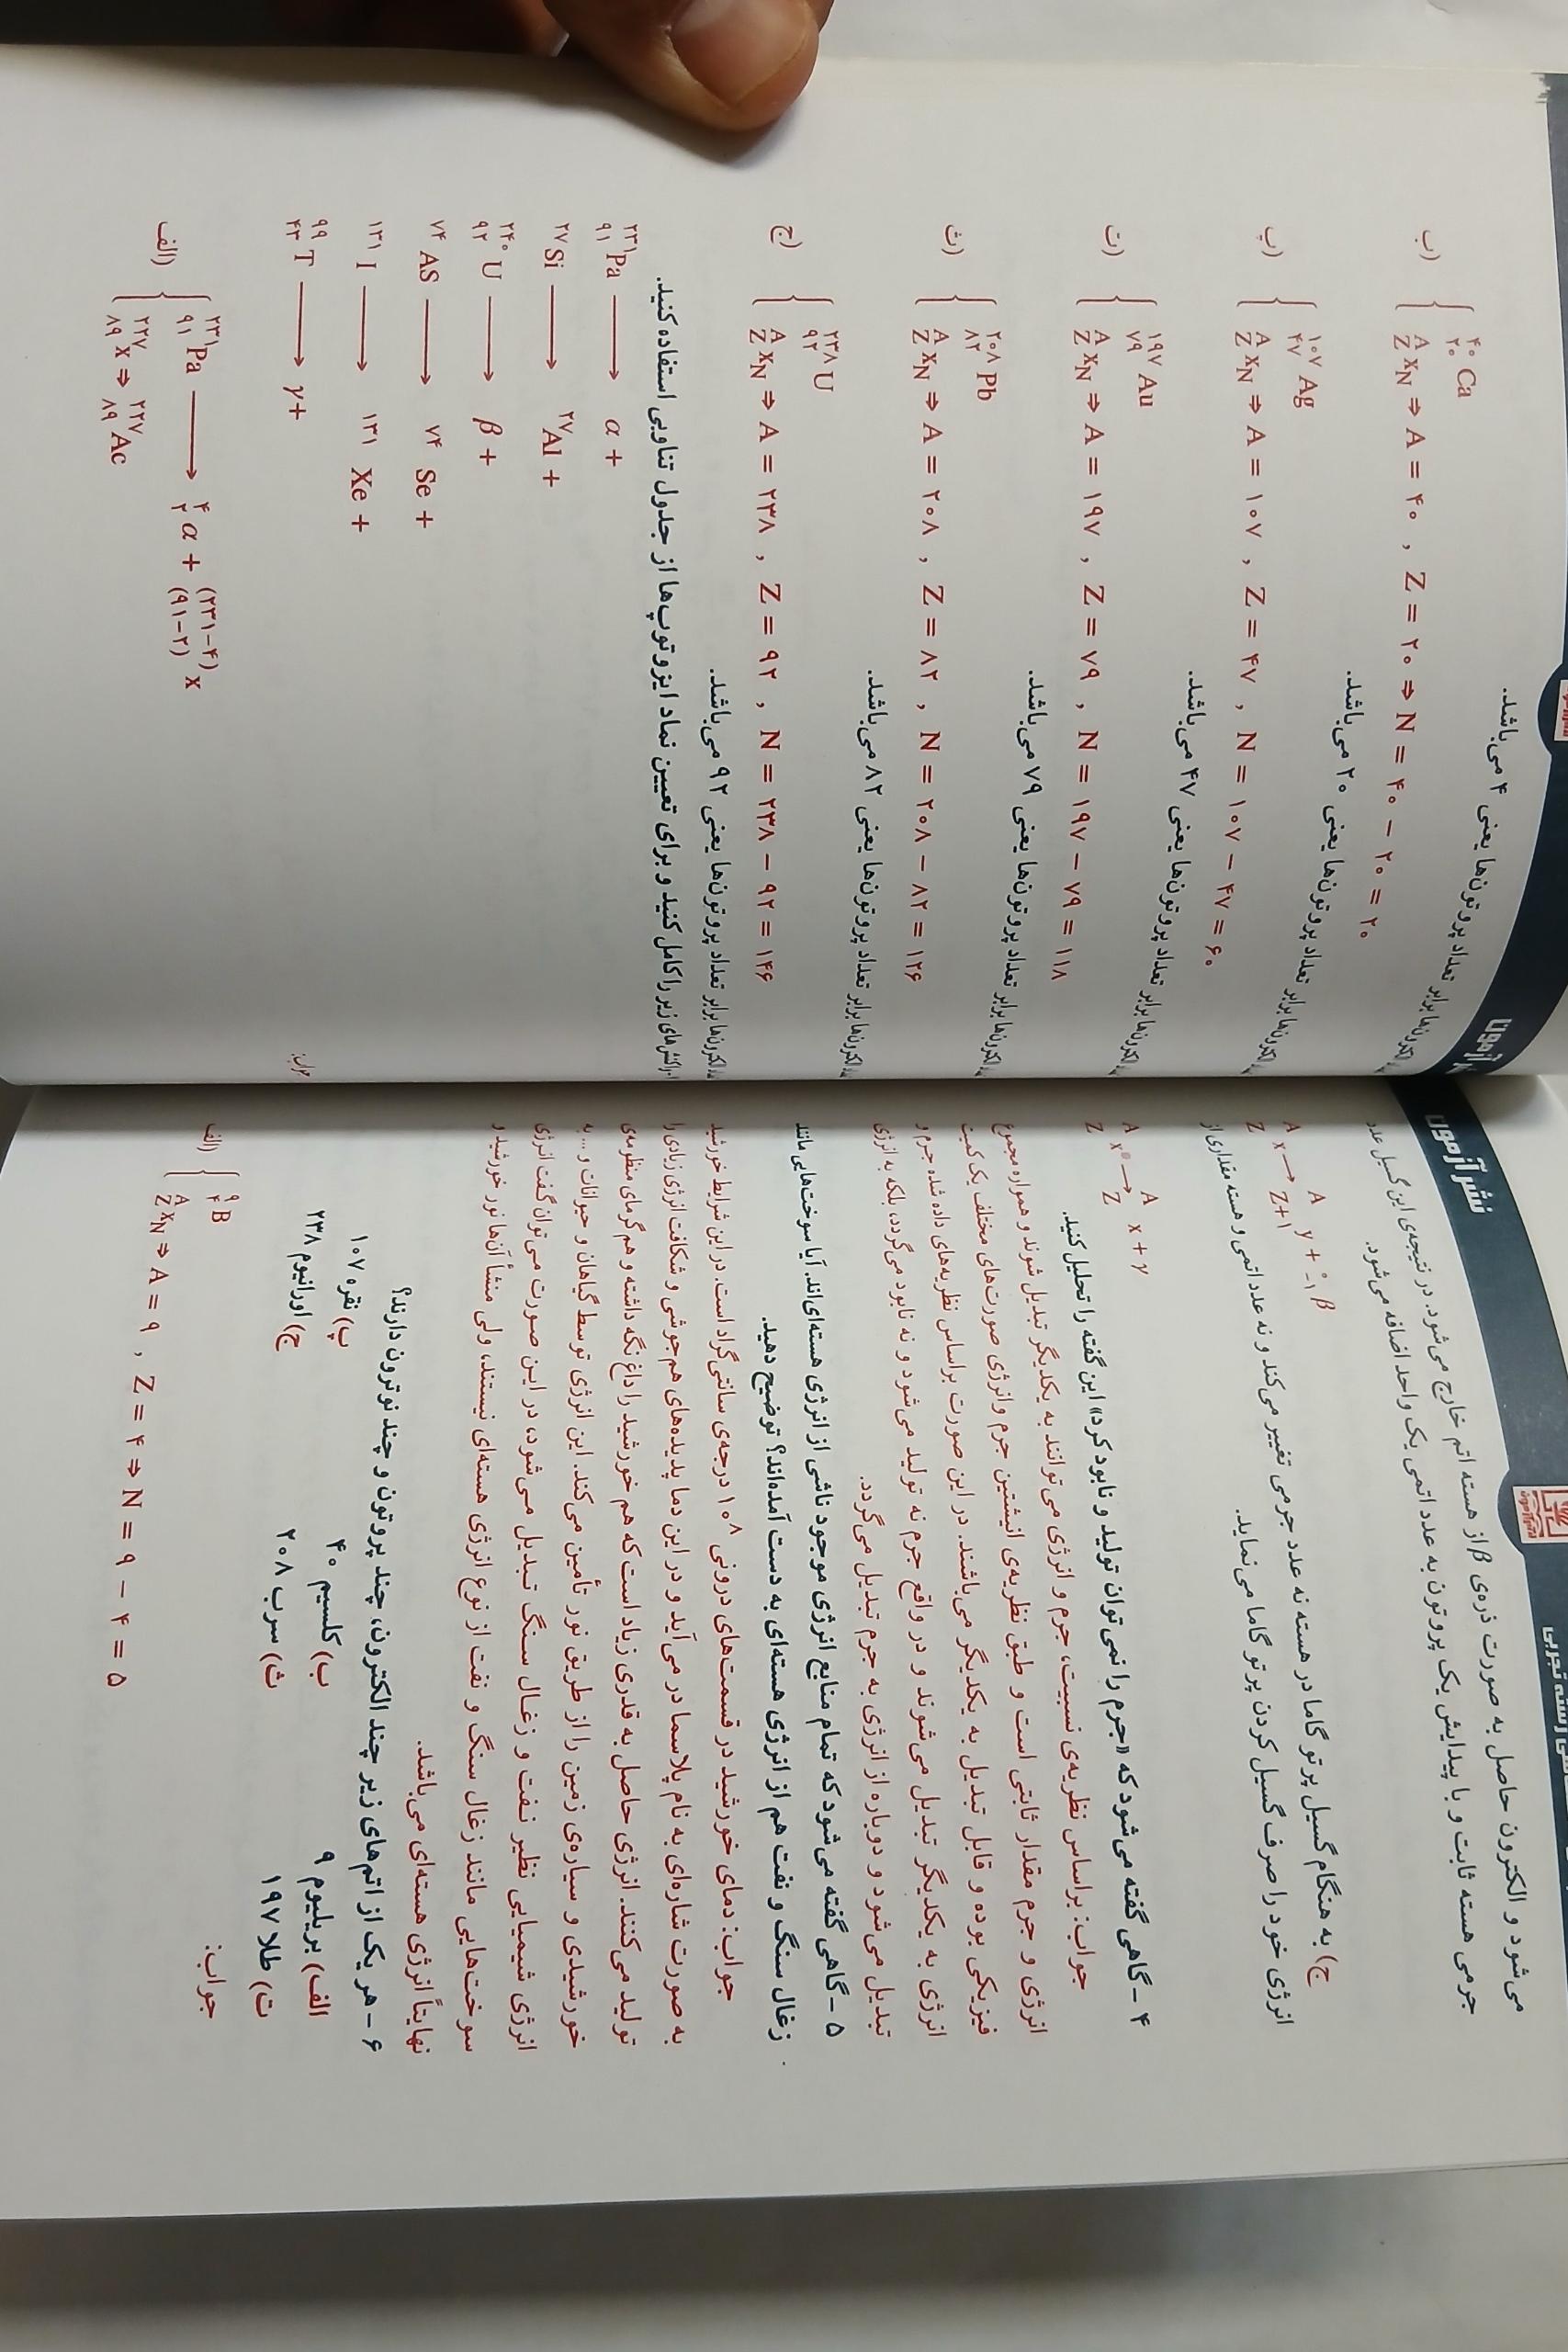 نشر آزمون
می‌شود و الکترون حاصل به صورت ذره‌ی β از هسته اتم خارج می‌شود. در نتیجه‌ی این گسیل عدد
جرمی هسته ثابت و با پیدایش یک پروتون به عدد اتمی یک واحد اضافه می‌شود.
A Z x → A Z+1 y + ° −۱ β
ج) به هنگام گسیل پرتو گاما در هسته نه عدد جرمی تغییر می‌کند و نه عدد اتمی و هسته مقداری از
انرژی خود را صرف گسیل کردن پرتو گاما می‌نماید.
A Z x° → A Z x + γ
۴ - گاهی گفته می‌شود که «جرم را نمی‌توان تولید و نابود کرد» این گفته را تحلیل کنید.
جواب: براساس نظریه‌ی نسبیت، جرم و انرژی می‌توانند به یکدیگر تبدیل شوند و همواره مجموع
انرژی و جرم مقدار ثابتی است و طبق نظریه‌ی انیشتین جرم و انرژی صورت‌های مختلف یک کمیت
فیزیکی بوده و قابل تبدیل به یکدیگر می‌باشند. در این صورت براساس نظریه‌های داده شده جرم و
انرژی به یکدیگر تبدیل می‌شوند و در واقع جرم نه تولید می‌شود و نه نابود می‌گردد، بلکه به انرژی
تبدیل می‌شود و دوباره از انرژی به جرم تبدیل می‌گردد.
۵ - گاهی گفته می‌شود که تمام منابع انرژی موجود ناشی از انرژی هسته‌ای‌اند. آیا سوخت‌هایی مانند
زغال سنگ و نفت هم از انرژی هسته‌ای به دست آمده‌اند؟ توضیح دهید.
جواب: دمای خورشید در قسمت‌های درونی ۱۰^۸ درجه‌ی سانتی‌گراد است. در این شرایط خورشید
به صورت شاره‌ای به نام پلاسما در می‌آید و در این دما پدیده‌های هم‌جوشی و شکافت انرژی زیادی را
تولید می‌کنند. انرژی حاصل به قدری زیاد است که هم خورشید را داغ نگه داشته و هم گرمای منظومه‌ی
خورشیدی و سیاره‌ی زمین را از طریق نور تأمین می‌کند. این انرژی توسط گیاهان و حیوانات و ... به
انرژی شیمیایی نظیر نفت و زغال سنگ تبدیل می‌شود، در این صورت می‌توان گفت انرژی
سوخت‌هایی مانند زغال سنگ و نفت از نوع انرژی هسته‌ای نیستند، ولی منشأ آن‌ها نور خورشید و
نهایتاً انرژی هسته‌ای می‌باشد.
۶ - هر یک از اتم‌های زیر چند الکترون، چند پروتون و چند نوترون دارند؟
الف) بریلیوم ۹ ب) کلسیم ۴۰ پ) نقره ۱۰۷
ت) طلا ۱۹۷ ث) سرب ۲۰۸ ج) اورانیوم ۲۳۸
جواب:
الف) { ۹ ۴ B
A Z x N ⇒ A = ۹ , Z = ۴ ⇒ N = ۹ − ۴ = ۵
آزمون
الکترون‌ها برابر تعداد پروتون‌ها یعنی ۴ می‌باشد.
ب) { ۴۰ ۲۰ Ca
A Z x N ⇒ A = ۴۰ , Z = ۲۰ ⇒ N = ۴۰ − ۲۰ = ۲۰
الکترون‌ها برابر تعداد پروتون‌ها یعنی ۲۰ می‌باشد.
پ) { ۱۰۷ ۴۷ Ag
A Z x N ⇒ A = ۱۰۷ , Z = ۴۷ , N = ۱۰۷ − ۴۷ = ۶۰
الکترون‌ها برابر تعداد پروتون‌ها یعنی ۴۷ می‌باشد.
ت) { ۱۹۷ ۷۹ Au
A Z x N ⇒ A = ۱۹۷ , Z = ۷۹ , N = ۱۹۷ − ۷۹ = ۱۱۸
الکترون‌ها برابر تعداد پروتون‌ها یعنی ۷۹ می‌باشد.
ث) { ۲۰۸ ۸۲ Pb
A Z x N ⇒ A = ۲۰۸ , Z = ۸۲ , N = ۲۰۸ − ۸۲ = ۱۲۶
الکترون‌ها برابر تعداد پروتون‌ها یعنی ۸۲ می‌باشد.
ج) { ۲۳۸ ۹۲ U
A Z x N ⇒ A = ۲۳۸ , Z = ۹۲ , N = ۲۳۸ − ۹۲ = ۱۴۶
الکترون‌ها برابر تعداد پروتون‌ها یعنی ۹۲ می‌باشد.
واکنش‌های زیر را کامل کنید و برای تعیین نماد ایزوتوپ‌ها از جدول تناوبی استفاده کنید.
۲۳۱ ۹۱ Pa → α +
۲۷ Si → ۲۷ Al +
۲۴۰ ۹۲ U → β +
۷۴ AS → ۷۴ Se +
۱۳۱ I → ۱۳۱ Xe +
۹۹ ۴۳ T → γ +
جواب:
الف) { ۲۳۱ ۹۱ Pa → ۴ ۲ α + (۲۳۱−۴) (۹۱−۲) x
۲۲۷ ۸۹ x ⇒ ۲۲۷ ۸۹ Ac